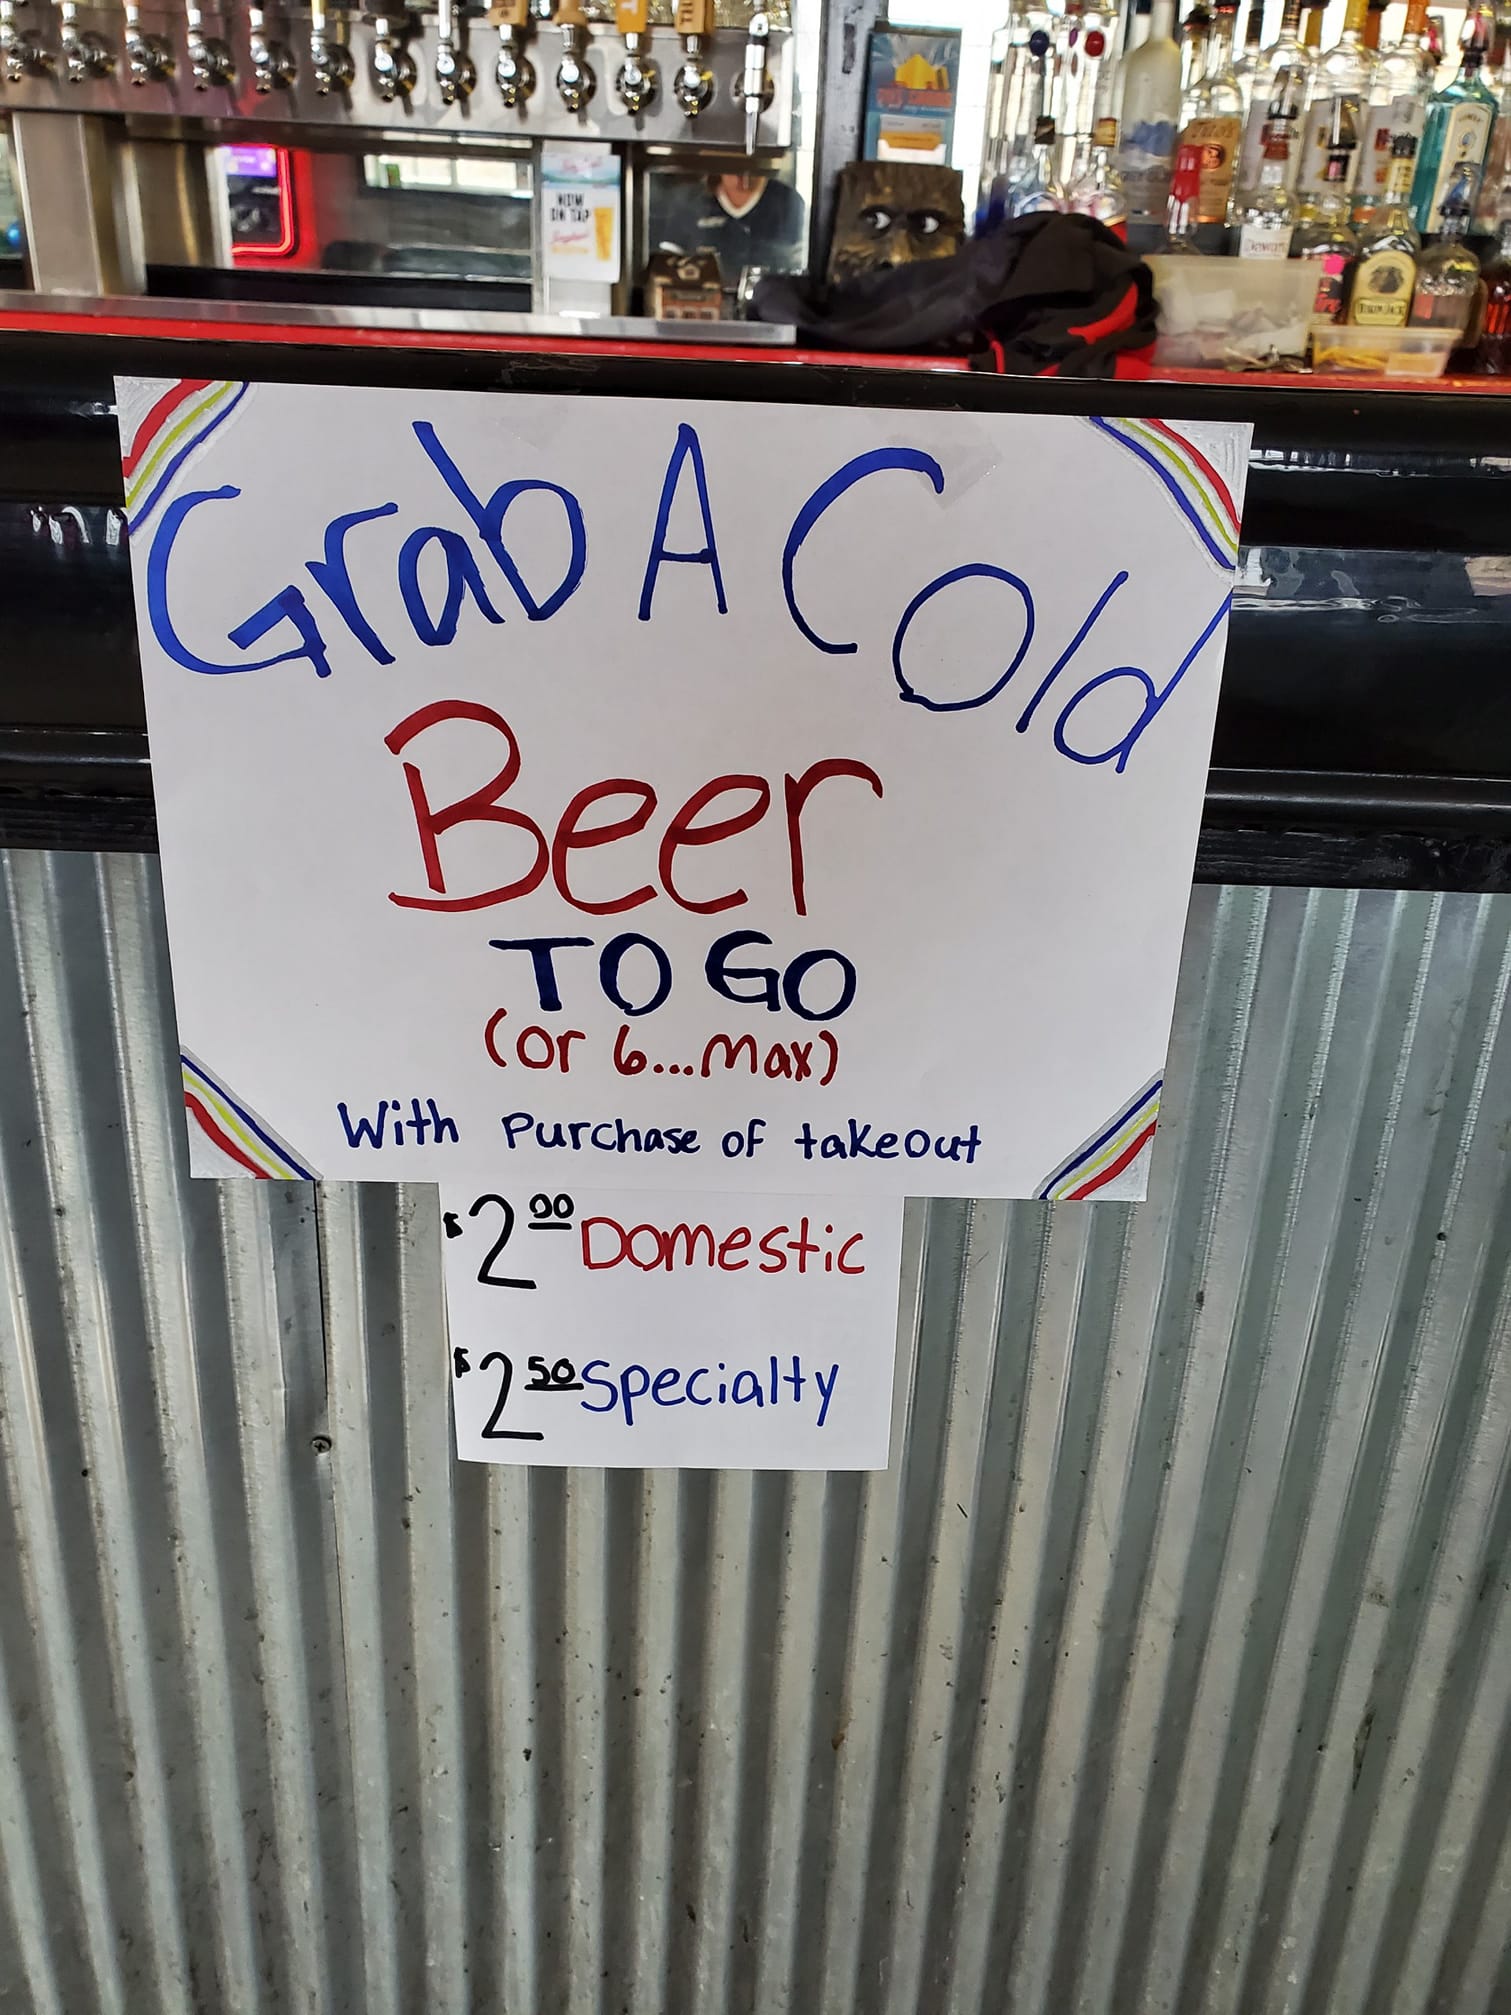 NOW
ON TAP
Grab A Cold
Beer
TO GO
(or 6...Max)
With Purchase of takeout
$2.00 Domestic
$2.50 Specialty